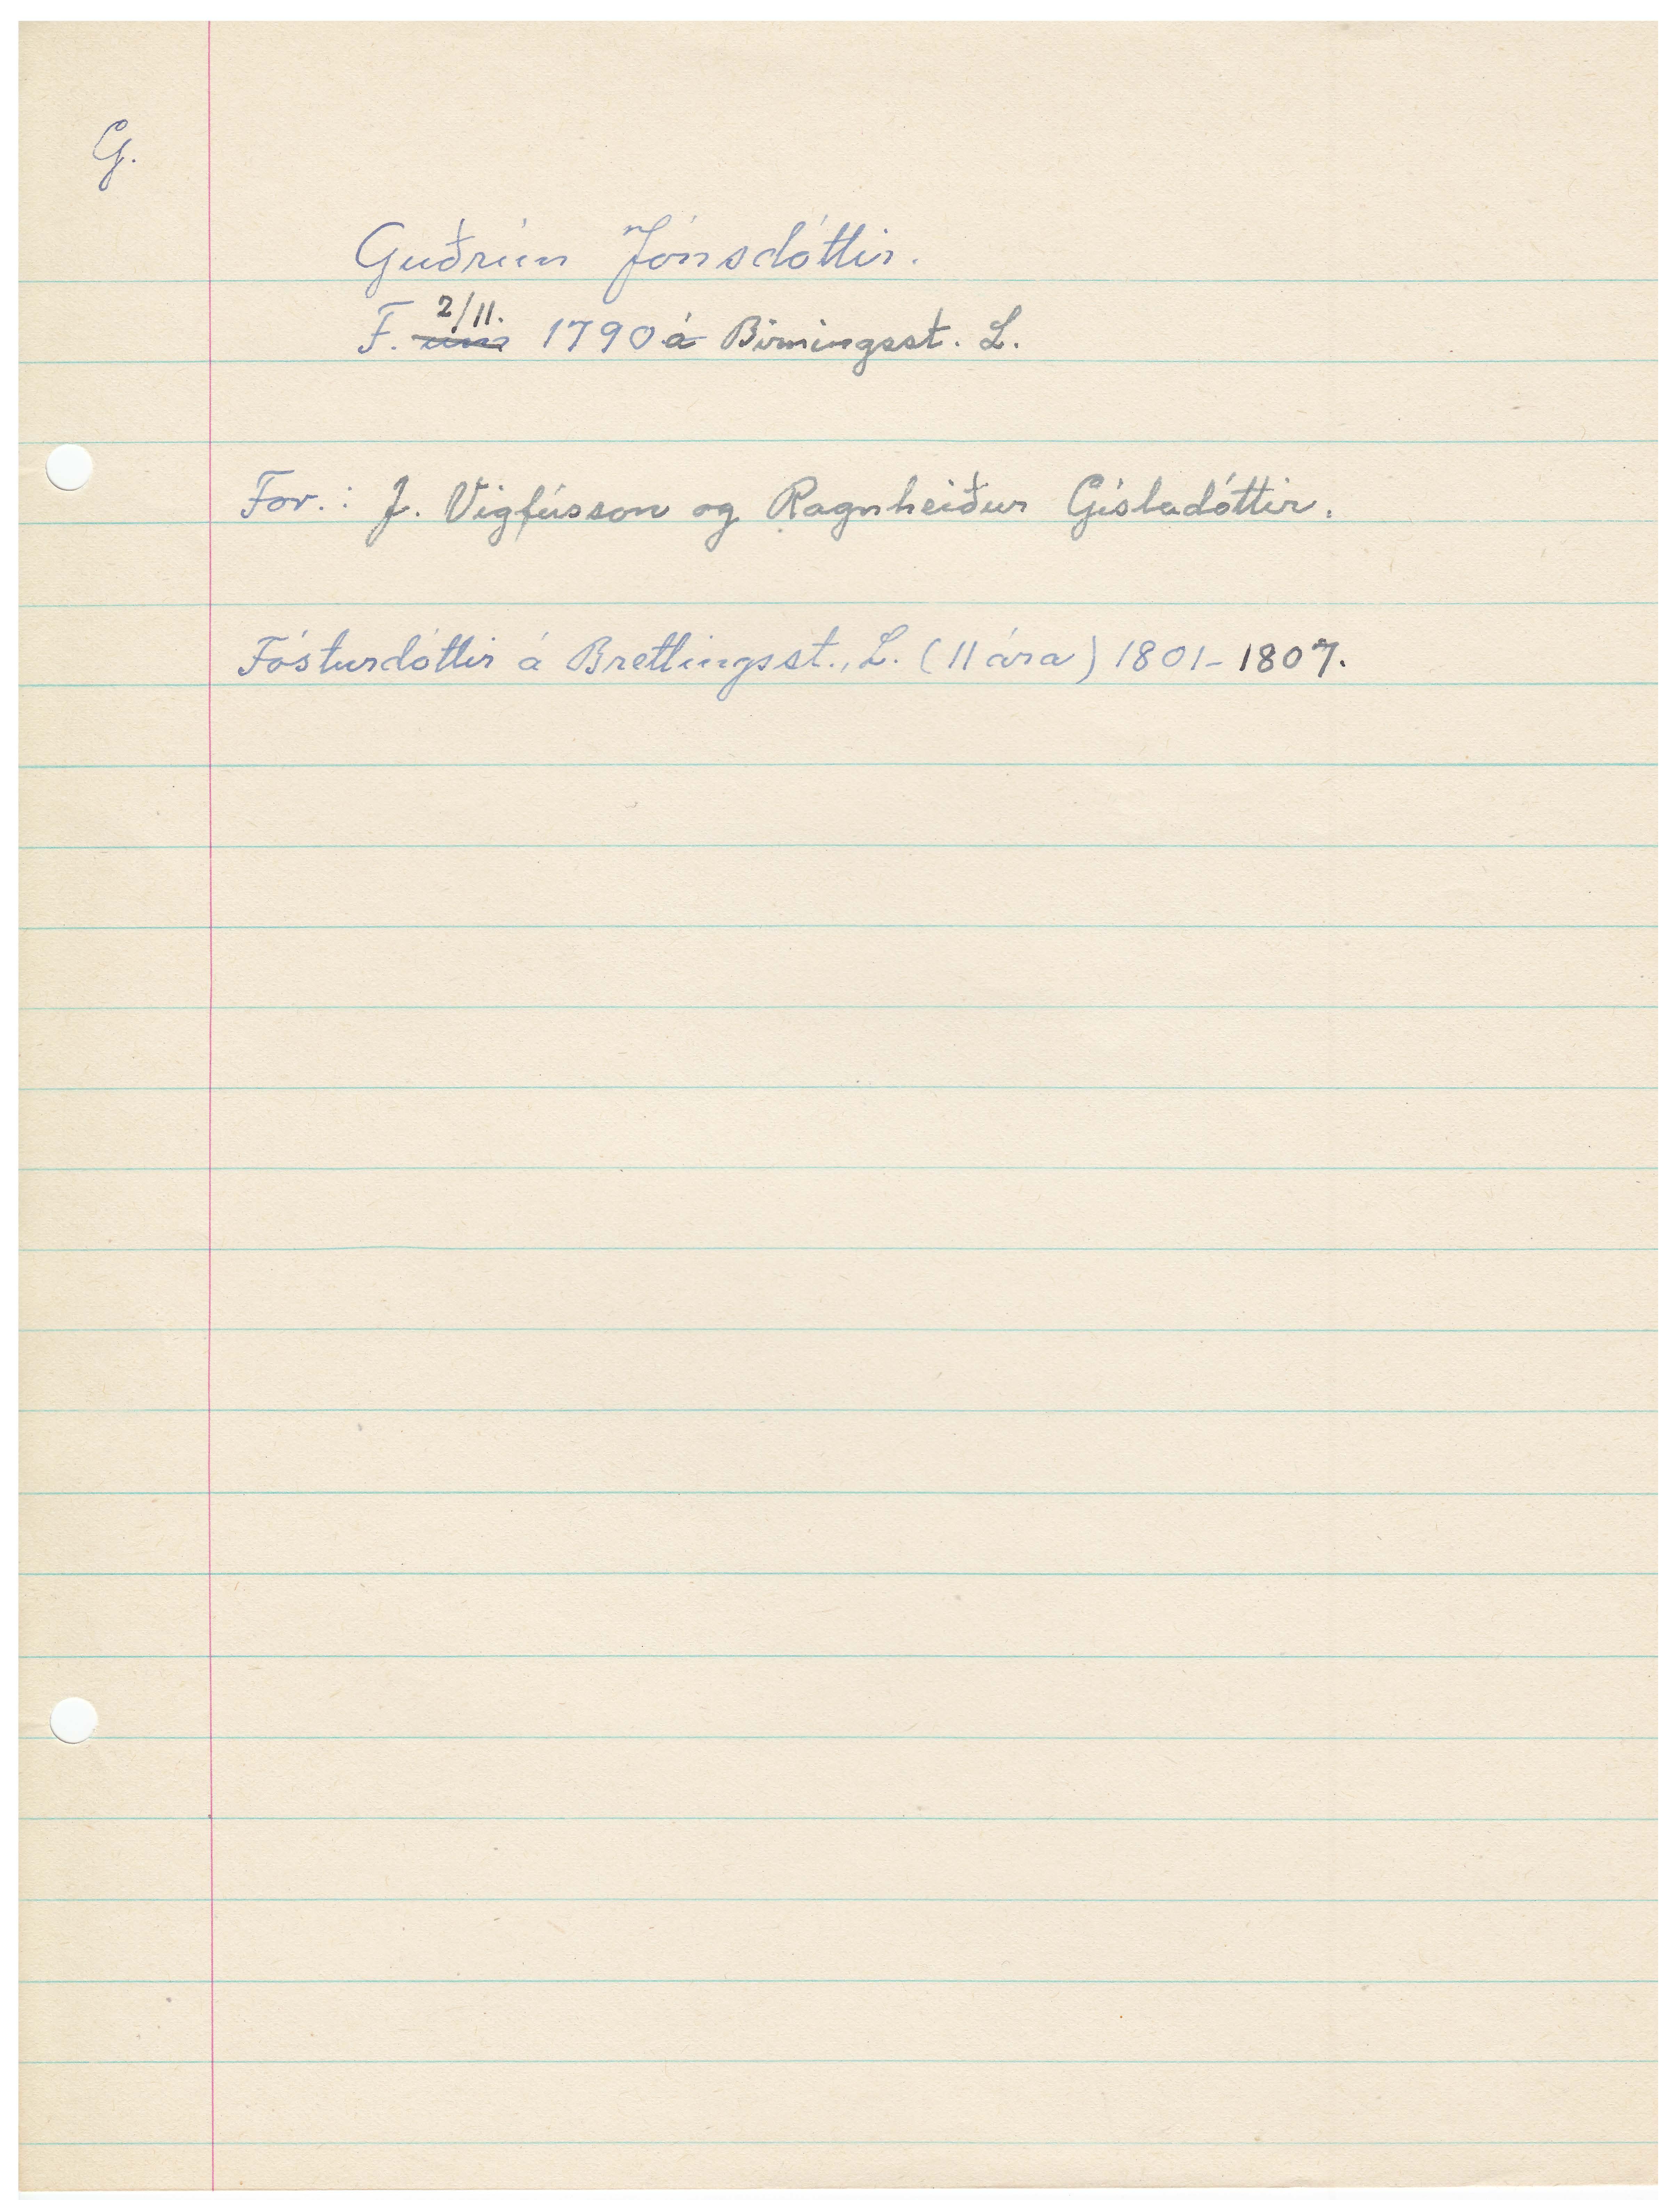 G.
Guðrún Jónsdóttir.
2/11.
F. um 1790 á Birningsst. L.
For.: J. Vigfússon og Ragnheiður Gísladóttir.
Fósturdóttir á Brettingsst., L. (11 ára) 1801-1807.